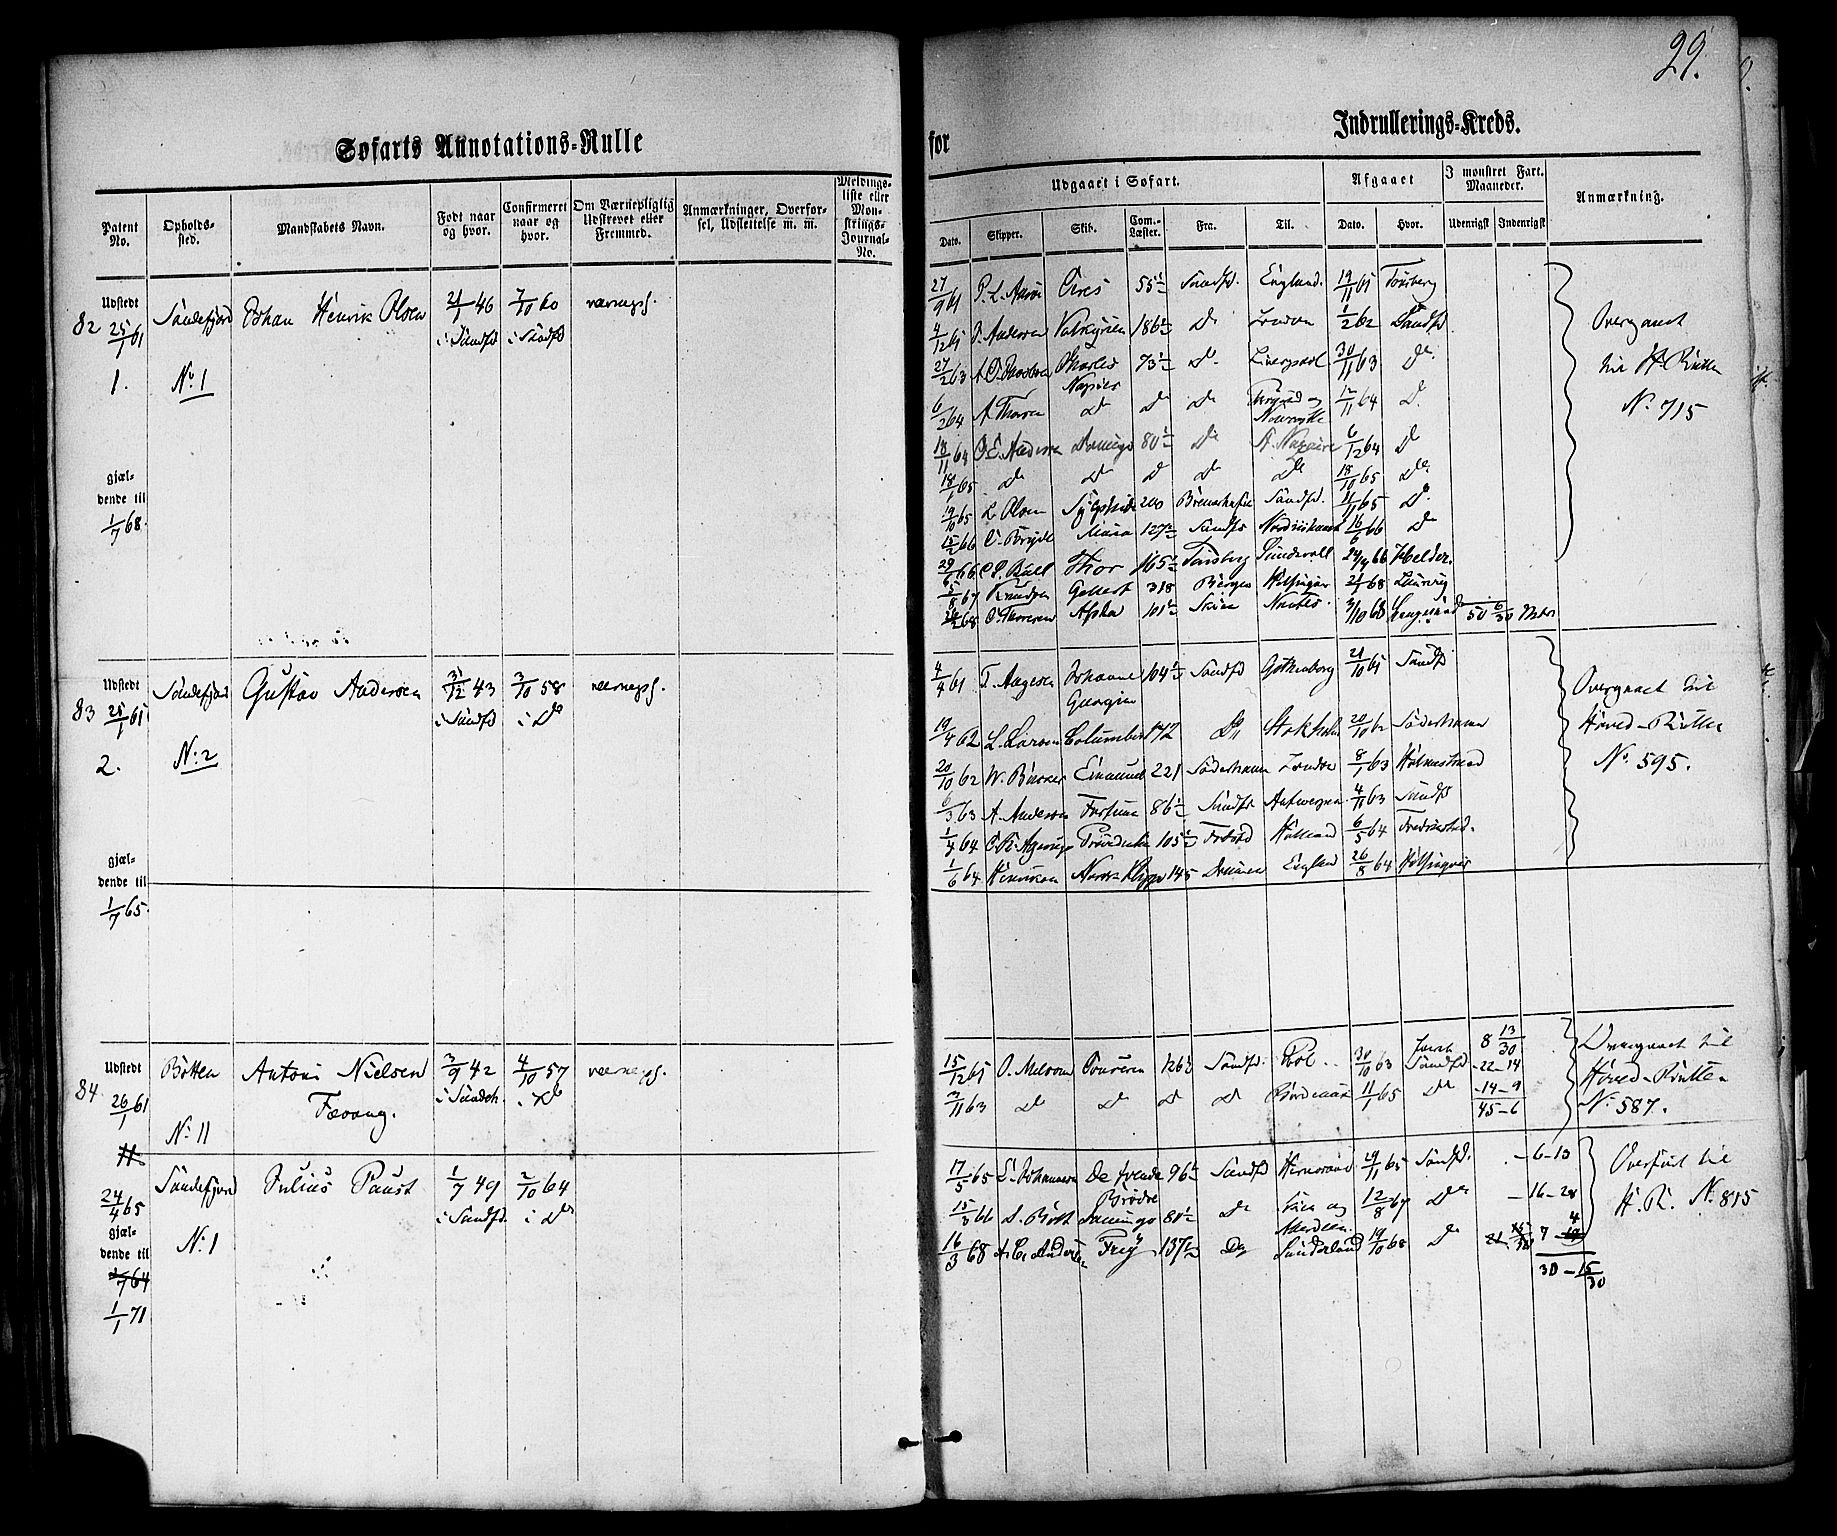 29.
Søfarts Annotations-Rulle
for
Indrullerings-Kreds.
Patent No.
Opholds-sted.
Mandskabets Navn.
Født naar og hvor.
Confirmeret naar og hvor.
Om Værnepligtig Udskrevet eller Fremmed.
Anmærkninger, Overførsel, Udslettelse m. m.
Meldings-liste eller Mønstrings-Journal-No.
Udgaaet i Søfart.
Afgaaet
I mønstret Fart. Maaneder.
Anmærkning.
Dato. Skipper. Skib. Com.-Læster. Fra. Til. Dato. Hvor. Udenrigst Indenrigst
82 Udstedt 25/1 61 Sandefjord Johan Henrik Olsen 21/1 46 i Sandfd 7/10 60 i Sandfd værnepl.
1. No 1
gjæl-
dende til
1/7 68.
27/9 61 Ceres 55½ Sandfd. England. 19/11 61 Tønsberg
4/12 61 P. Andersen Valkyrien 186½ Do London 1/2 62 Sandfd
27/2 63 Charles Napier 73½ Do Liverpool 30/11 63 Do
6/2 64 A. Thorsen Do Do Do 12/11 64 Do
13/11 64 O. E. Andersen 80½ Do 6/12 64 Do
18/1 65 Do Do Do Do Do 18/10 65 Do
19/10 65 L. Olsen 200 Sandfd. 11/11 65 Do
15/2 66 Maria 127½ Sandfd 16/6 66 Do
29/6 66 Thor 165½ Tønsberg Sundsvall 24/9 66 Helder.
5/8 67 Knudsen Gellert 318 Bergen Helsingør 21/1 68 Laurvig
68 O. Thoresen Alpha 101½ Skien Nantes. 3/10 68 Langesund 50 6/30 Mdr
Overgaaet
til H. Rullen
No. 715
83 Udstedt 25/1 61 Sandefjord Gustav Andersen 31/12 43 i Sandfd 3/10 58 i Do værnepl.
2. No. 2
gjæl-
dende til
1/7 65.
4/4 61 T. Aagesen Johanne Georgine 104½ Sandfd Gothenborg 21/10 61 Sandfd
19/4 62 L. Larsen Columbus 172 Do Stokholm 20/10 62 Söderhamn
20/10 62 W. Bucker 221 Söderhamn London 8/1 63 Holmestrand
6/3 63 A. Andersen Fortuna 86½ Sandfd Antwerpen 4/11 63 Sandfd
1/4 64 105½ Holland 6/5 64 Fredrikstad.
1/6 64 Henriksen Norsk Klippe 145 Drammen England 26/8 64 Helsingør
Overgaaet til
Hoved-Rullen
No. 595.
84 Udstedt 26/1 61 Botten Antoni Nielsen Fævang. 3/9 42 i Sandeh. 4/10 57 i Do værnepl.
No 11
15/12 61 O. Melsom 126½ Sandfd. 30/10 63 Sandfd 8 13/30
22-14
3/11 63 Do Do Do Do Bordeaux 11/1 65 Do 14-9
45-6
Overgaaet til
Hoved-Rullen
No. 587.
24/4 65 Sandefjord Julius Paust 1/7 49 i Sandfd. 2/10 64 i Do
gjæl-
dende til
1/7 64
1/1 71
No. 1
17/5 65 E. Johannesen De tvende Brødre 96½ Sandfd Hernøsand 29/11 65 Sandfd. -6-13
15/3 66 Domingo 80½ Do 12/8 67 Do -16-28
16/3 68 A. C. Andersen Frey 137½ Do Sunderland 19/10 68 Do 7-4
30-15/30
Overført til
H. R. No. 815